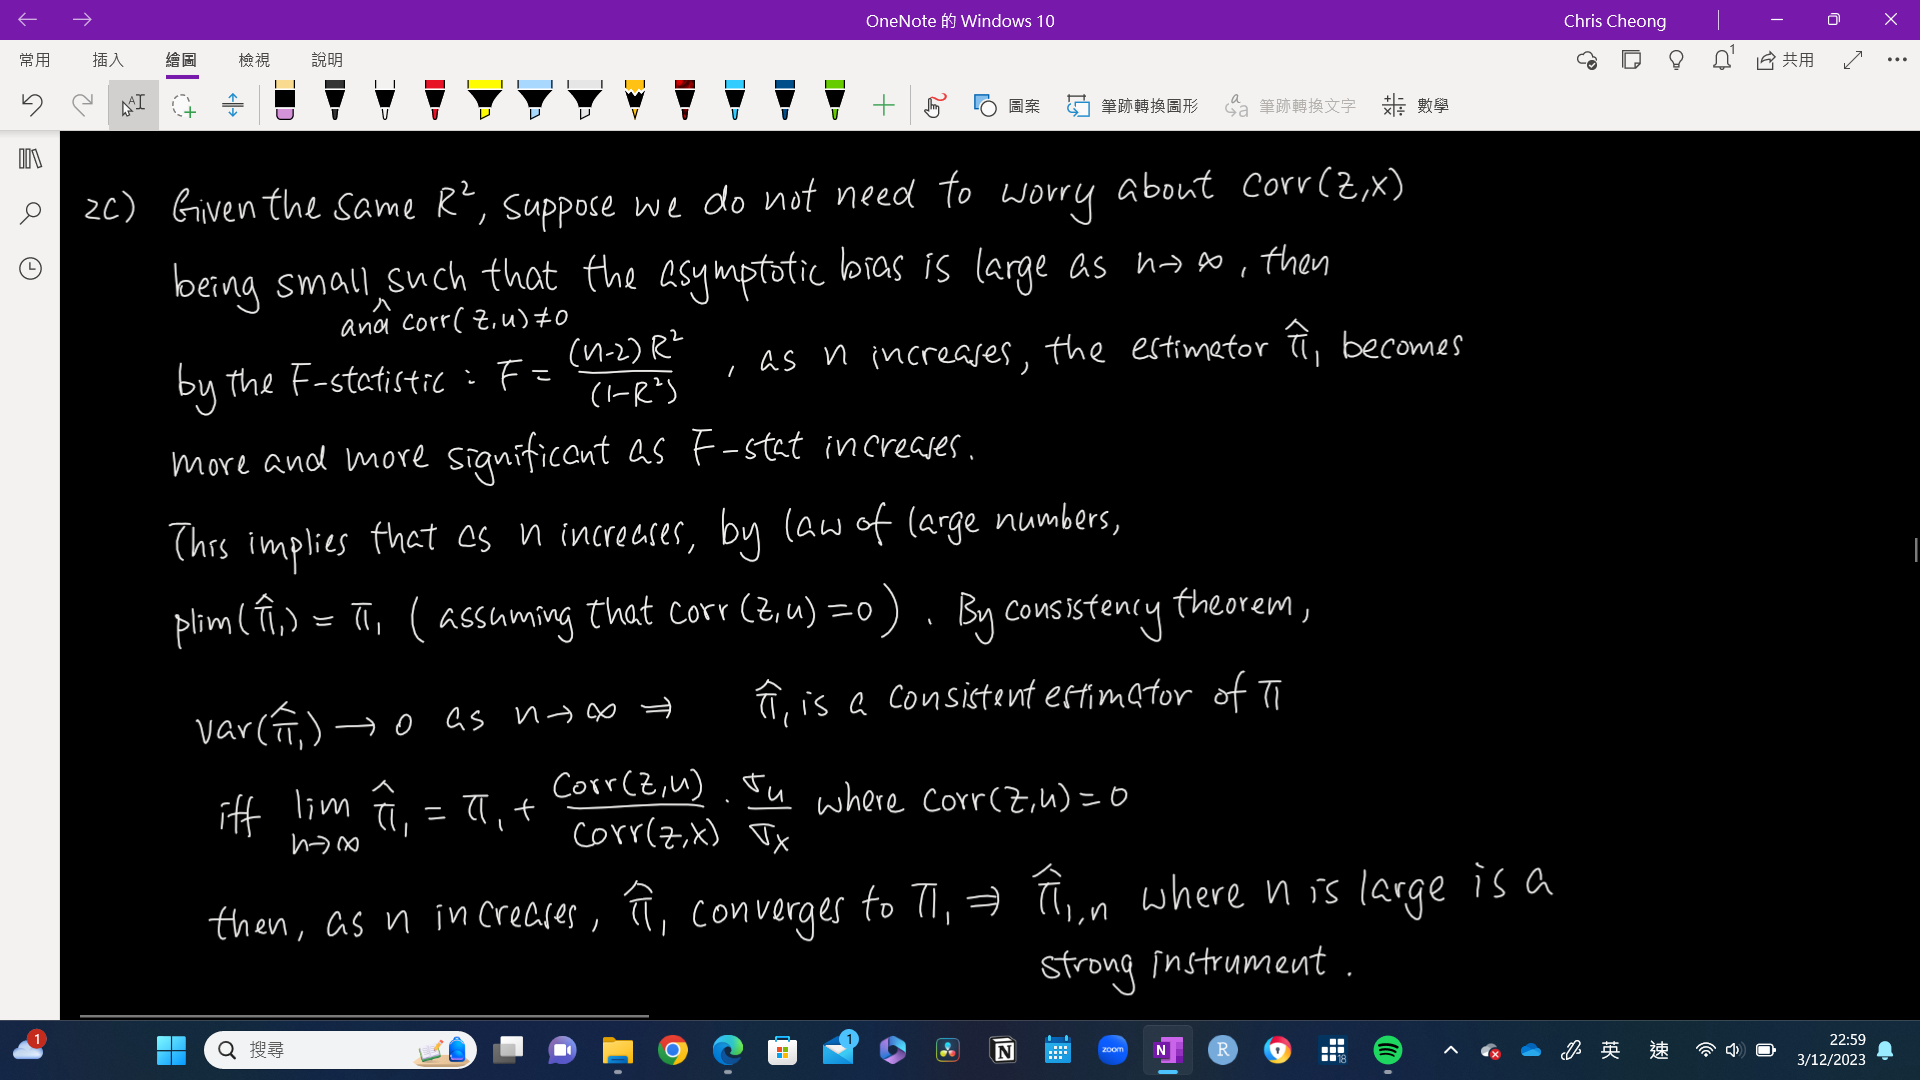 OneNote 的 Windows 10
Chris Cheong
常用 插入 繪圖 檢視 說明
1
共用
圖案 筆跡轉換圖形 筆跡轉換文字 數學
2c) Given the same R², suppose we do not need to worry about corr(z,x)
being small such that the asymptotic bias is large as n→∞, then
^
and corr(z,u)≠0
by the F-statistic : F = (n-2)R² / (1-R²) , as n increases, the estimator π̂₁ becomes
more and more significant as F-stat increases.
This implies that as n increases, by law of large numbers,
plim(π̂₁) = π₁ (assuming that corr(z,u)=0). By consistency theorem,
var(π̂₁) → 0 as n→∞ ⇒ π̂₁ is a consistent estimator of π
iff lim n→∞ π̂₁ = π₁ + Corr(z,u) / Corr(z,x) · σu / σx where corr(z,u)=0
then, as n increases, π̂₁ converges to π₁ ⇒ π̂₁,n where n is large is a
strong instrument.
1
搜尋
1
zoom
N
R
18
英
速
22:59
3/12/2023